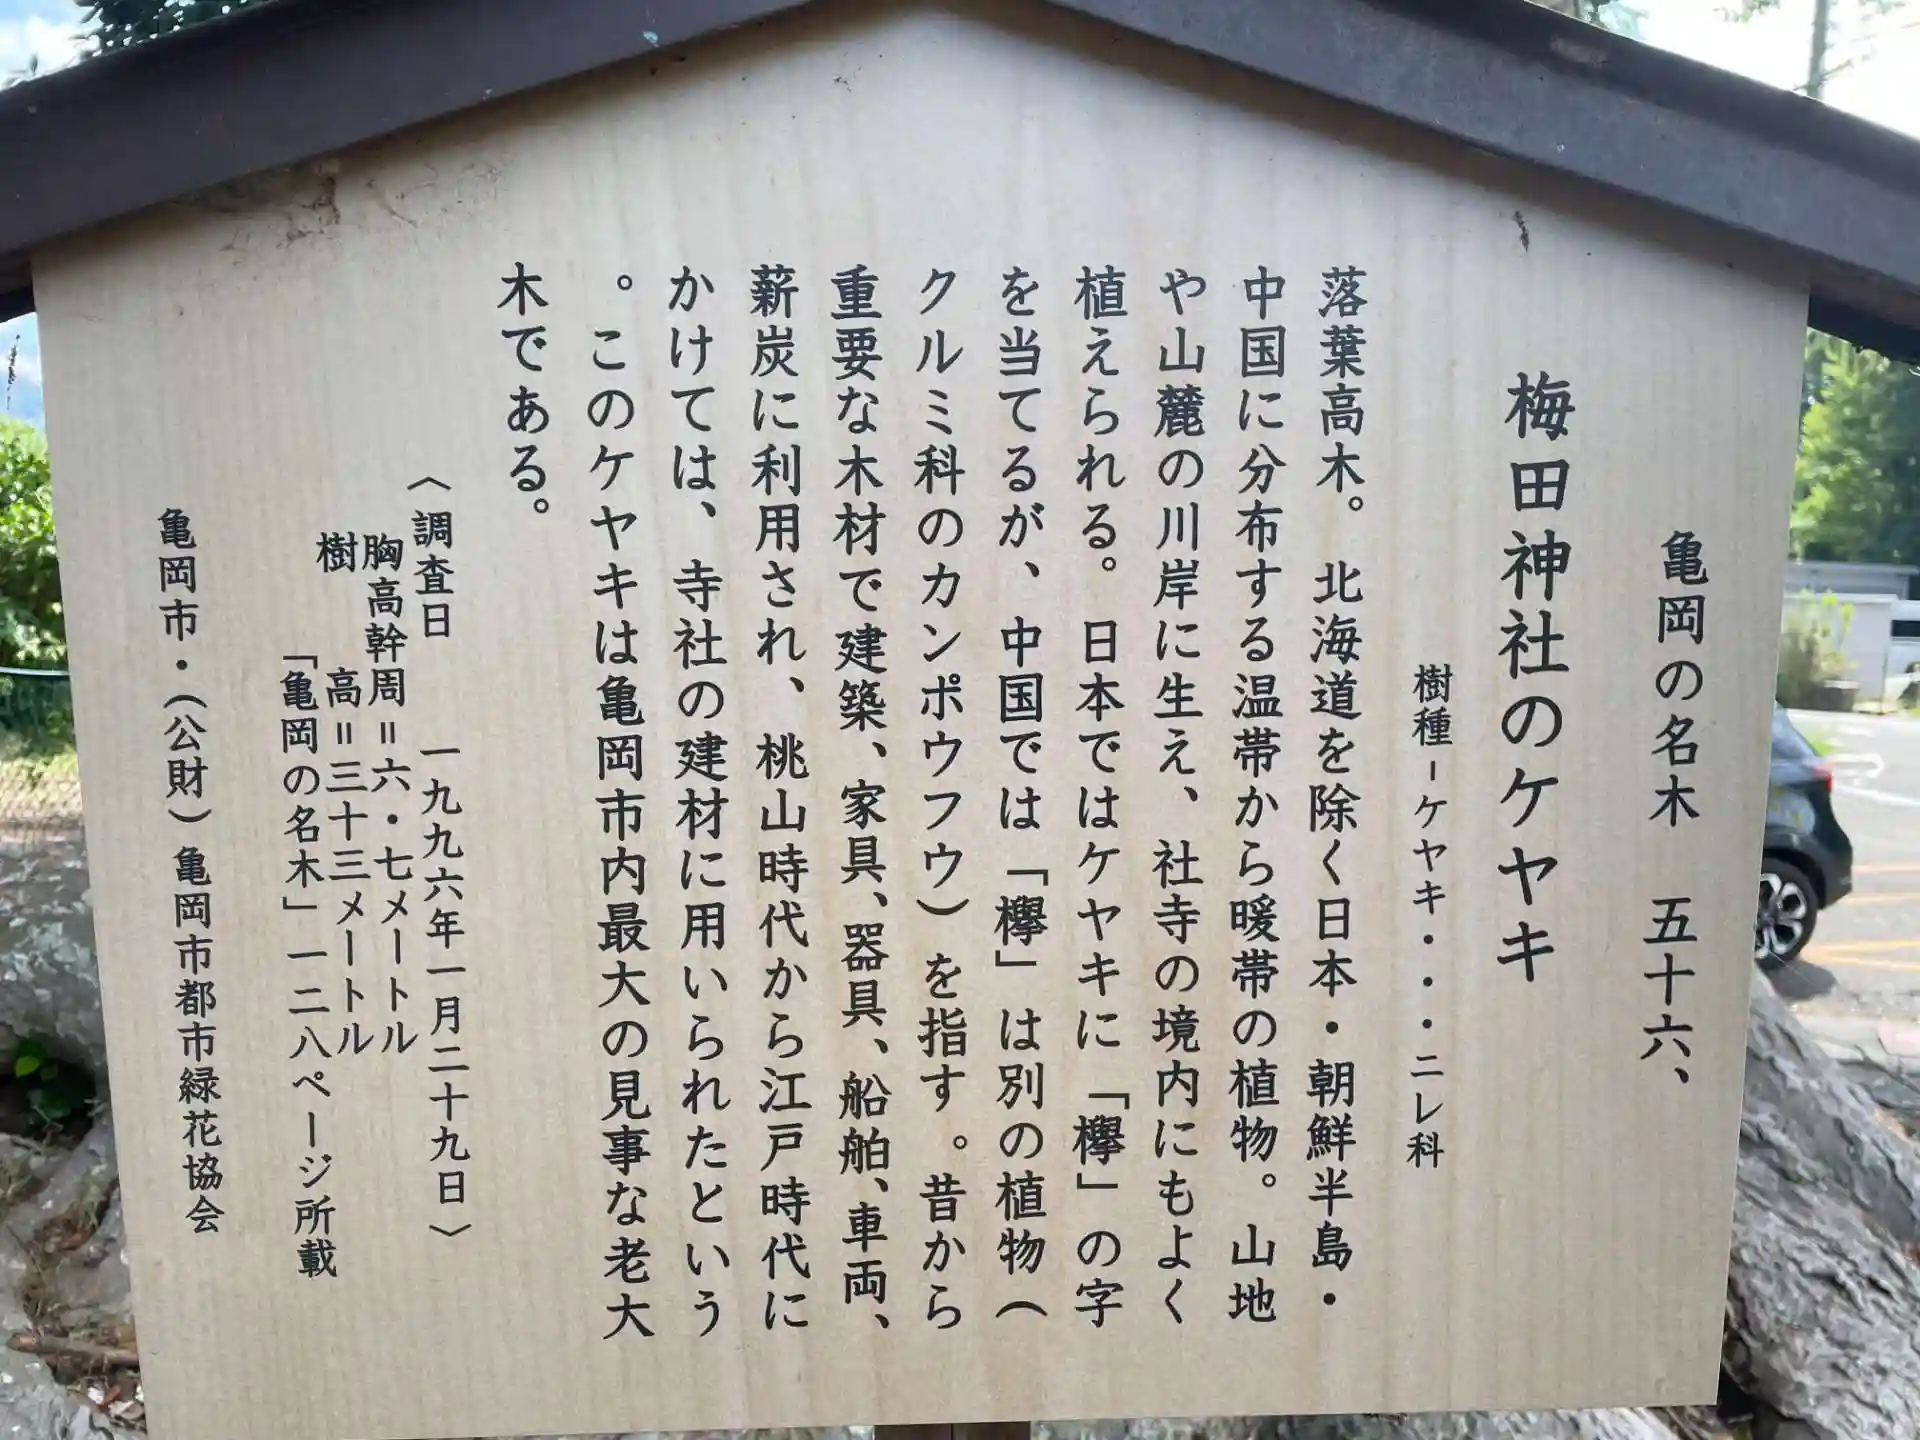 亀岡の名木　五十六、
梅田神社のケヤキ
樹種-ケヤキ・・・ニレ科
落葉高木。北海道を除く日本・朝鮮半島・
中国に分布する温帯から暖帯の植物。山地
や山麓の川岸に生え、社寺の境内にもよく
植えられる。日本ではケヤキに「欅」の字
を当てるが、中国では「欅」は別の植物（
クルミ科のカンポウフウ）を指す。昔から
重要な木材で建築、家具、器具、船舶、車両、
薪炭に利用され、桃山時代から江戸時代に
かけては、寺社の建材に用いられたという
。このケヤキは亀岡市内最大の見事な老大
木である。
〈調査日　一九九六年一月二十九日〉
胸高幹周＝六・七メートル
樹　高＝三十三メートル
「亀岡の名木」一二八ページ所載
亀岡市・（公財）亀岡市都市緑花協会